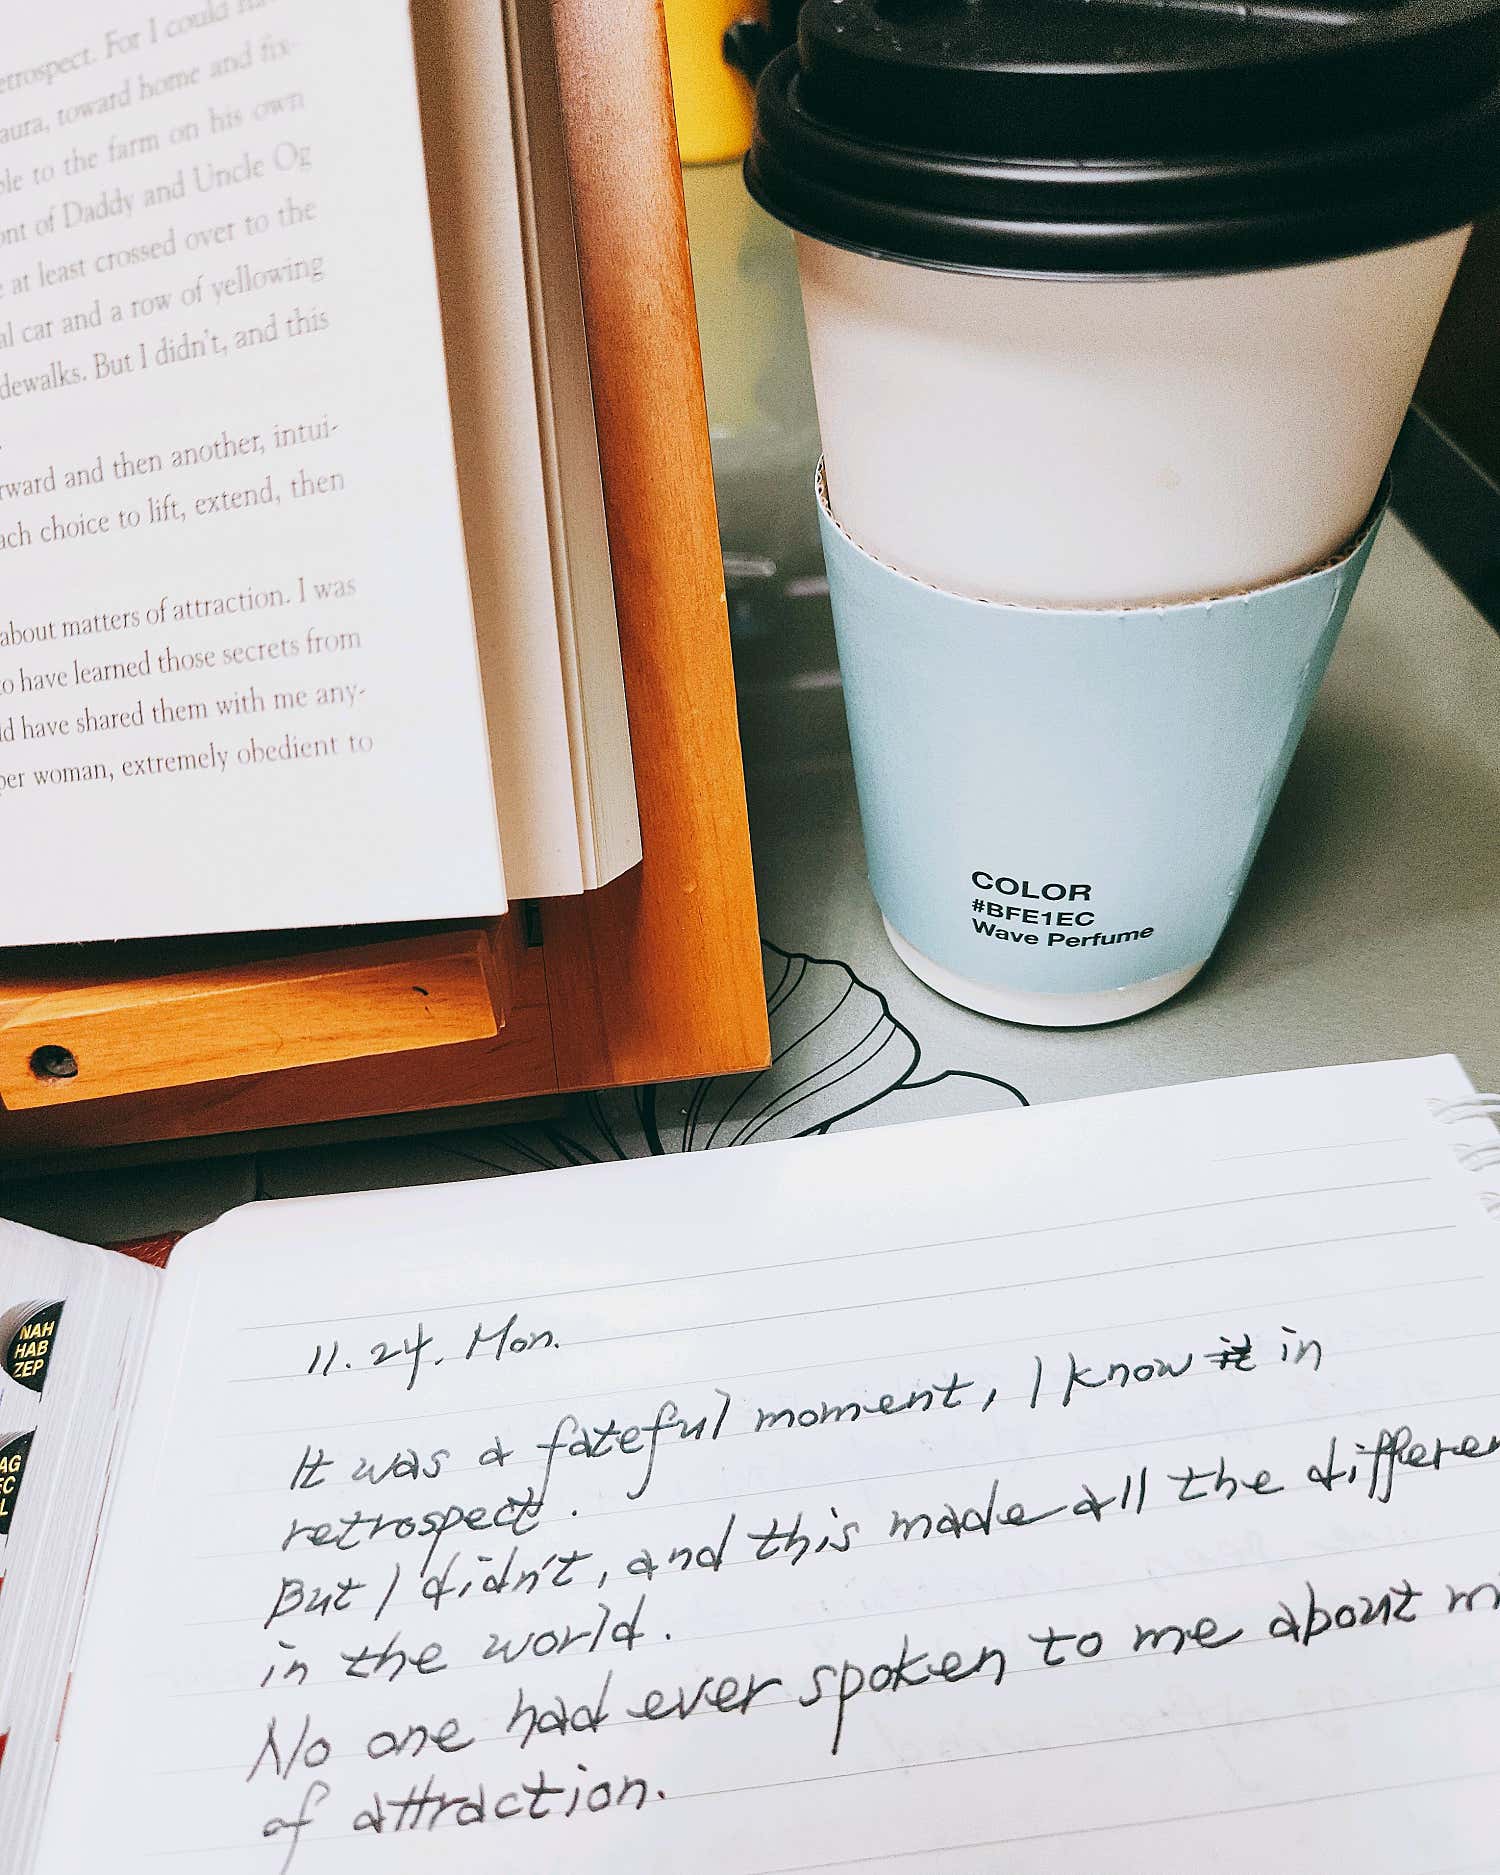 etrospect. For I could
aura, toward home and fix-
to the farm on his own
of Daddy and Uncle Og
at least crossed over to the
car and a row of yellowing
dewalks. But I didn't, and this
rward and then another, intui-
ach choice to lift, extend, then
about matters of attraction. I was
to have learned those secrets from
have shared them with me any-
per woman, extremely obedient to
COLOR
#BFE1EC
Wave Perfume
NAH
HAB
ZEP
AG
EC
L
11. 24. Mon.
It was a fateful moment, I know it in
retrospect.
But I didn't, and this made all the differen
in the world.
No one had ever spoken to me about m
of attraction.